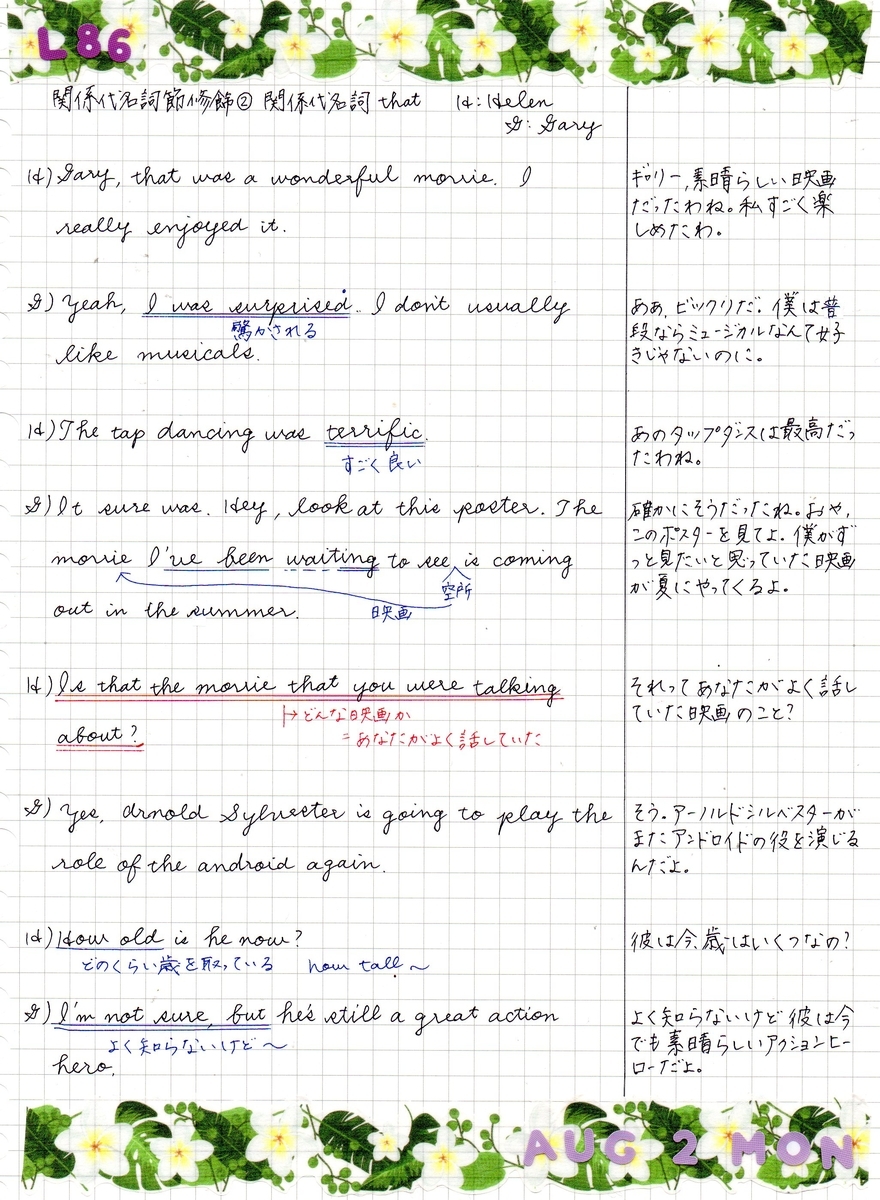 L 86
関係代名詞節修飾② 関係代名詞 that H: Helen
G: Gary
H) Gary, that was a wonderful movie. I
really enjoyed it.
ギャリー, 素晴らしい映画
だったわね。私すごく楽
しめたわ。
G) Yeah, I was surprised. I don't usually
驚かされる
like musicals.
ああ, ビックリだ。僕は普
段ならミュージカルなんて好
きじゃないのに。
H) The tap dancing was terrific.
すごく良い
あのタップダンスは最高だっ
たわね。
G) It sure was. Hey, look at this poster. The
movie I've been waiting to see is coming
空所
out in the summer.
映画
確かにそうだったね。おや,
このポスターを見てよ。僕がず
っと見たいと思っていた映画
が夏にやってくるよ。
H) Is that the movie that you were talking
どんな映画か
about?
=あなたがよく話していた
それってあなたがよく話し
ていた映画のこと?
G) Yes, Arnold Sylvester is going to play the
role of the android again.
そう。アーノルドシルベスターが
またアンドロイドの役を演じる
んだよ。
H) How old is he now?
どのくらい歳を取っている how tall~
彼は今、歳はいくつなの?
G) I'm not sure, but he's still a great action
よく知らないけど~
hero.
よく知らないけど彼は今
でも素晴らしいアクションヒー
ローだよ。
AUG 2 MON